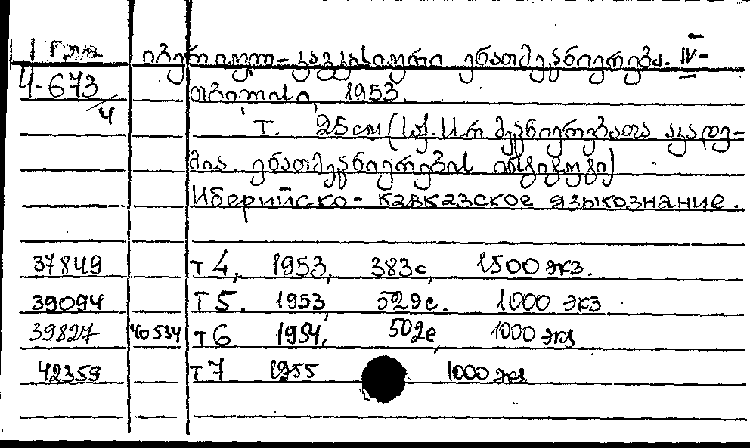 1 Груз იბერიულ-კავკასიური ენათმეცნიერება. IV-
4-673/4 თბილისი, 1953.
Т. 25 см (საქ. სსრ მეცნიერებათა აკადე-
მია. ენათმეცნიერების ინსტიტუტი)
Иберийско-кавказское языкознание.
37849 т 4, 1953, 383с, 1500 экз.
39094 Т 5. 1953, 529с. 1000 экз
39827 40534 т 6 1954, 502с, 1000 экз
42359 т 7 1955 1000 экз